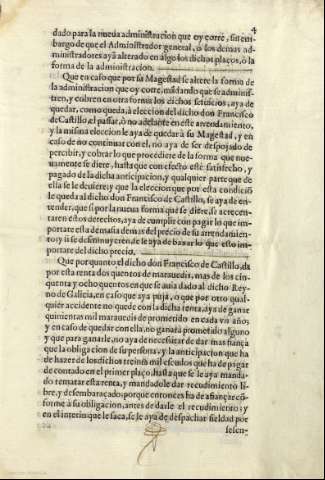 4
dado para la nueva administracion que oy corre, sin em-
bargo de que el Administrador general, ò los demas ad-
ministradores ayã alterado en algo los dichos plaços, ò la
forma de la administracion.
Que en caso que por su Magestad se altere la forma de
la administracion que oy corre, mãdando que se adminis-
tren, y cobren en otra forma los dichos seruicios, aya de
quedar, como queda, à eleccion del dicho don Francisco
de Castillo, el passar, ò no adelante en este arrendamiento,
y la misma eleccion le aya de quedar à su Magestad, y en
caso de no continuar con el, no aya de ser despojado de
percibir, y cobrar lo que procediere de la forma que nue-
uamente se diere, hasta que con efecto estè satisfecho, y
pagado de la dicha anticipacion, y qualquier parte que de
ella se le deuiere; y que la eleccion que por esta condiciõ
le queda al dicho don Francisco de Castillo, se aya de en-
tender, que si por la nueua forma que se diere, se acrecen-
taren estos derechos, aya de cumplir con pagar lo que im-
portare esta demasia demas del precio de su arrendamien-
to; y si se desminuyeren, se le aya de baxar lo que esto im-
portare del dicho precio.
Que por quanto el dicho don Francisco de Castillo, da
por esta renta dos quentos de marauedis, mas de los cin-
quenta y ocho quentos en que se auia dado al dicho Rey-
no de Galicia, en caso que aya puja, ò que por otro qual-
quier accidente no quede con la dicha renta, aya de ganar
quinientas mil marauedis de prometido en cada vn año;
y en caso de quedar con ella, no ganarà prometido alguno
y que para ganarle, no aya de necessitar de dar mas fiança
que la obligacion de su persona, y la anticipacion que ha
de hazer de los dichos treinta mil escudos que ha de pagar
de contado en el primer plaço, hasta que se le aya manda-
do rematar esta renta, y mandadole dar recudimiento li-
bre, y desembaraçado; porque entonces ha de afiançar cõ-
forme à su obligacion, antes de darle el recudimiento; y
en el interin que le saca, se le aya de despachar fieldad por
sesen-